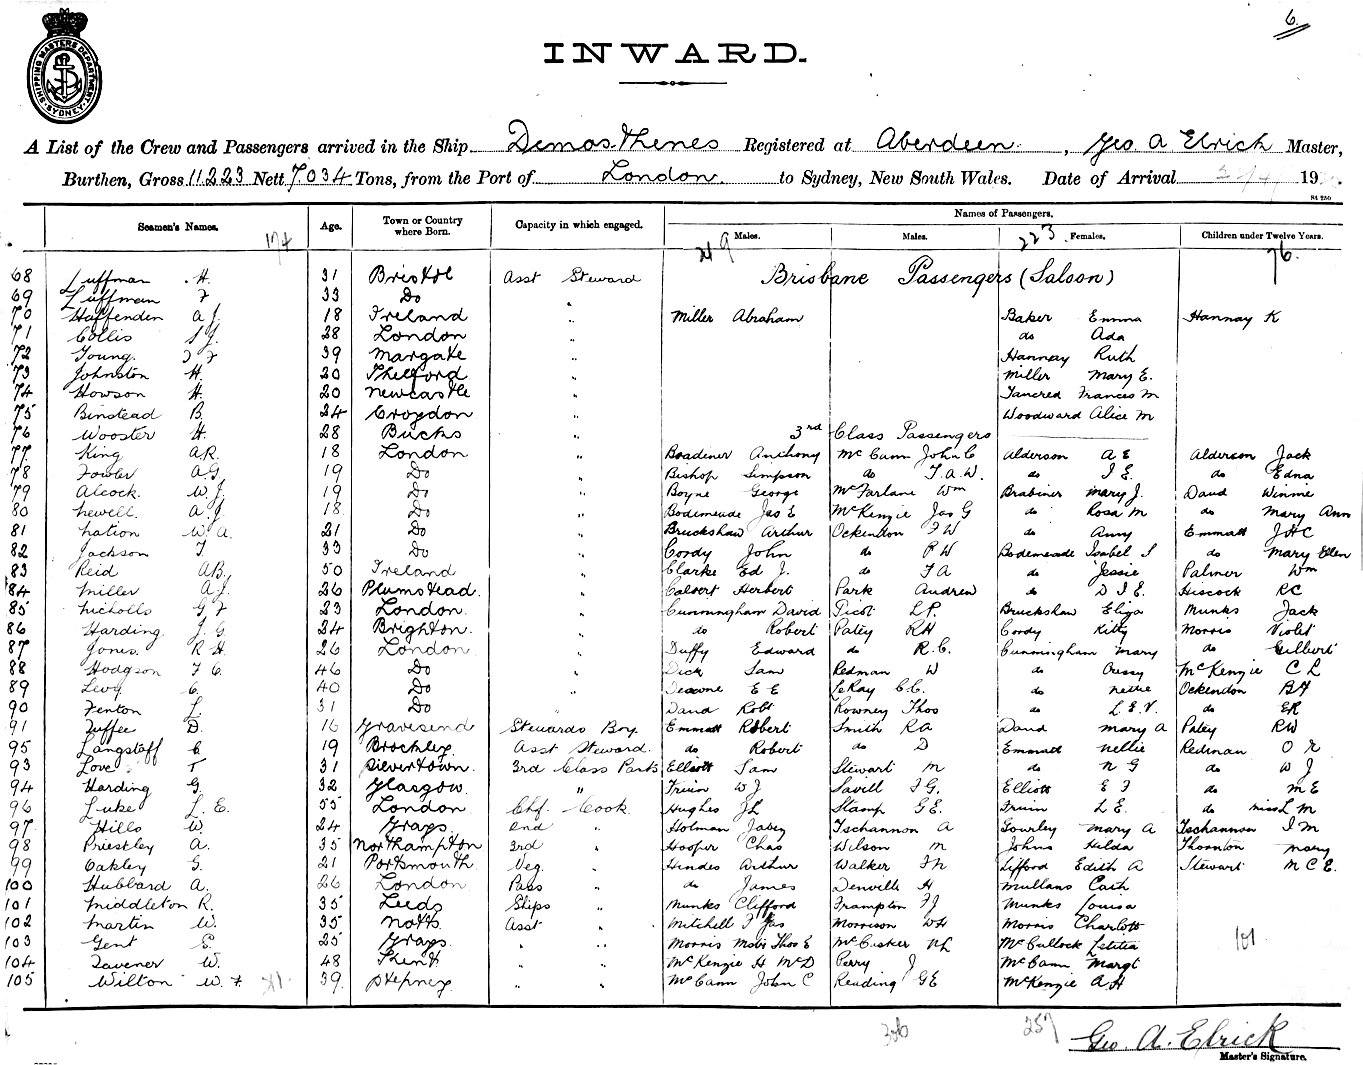 6.
SHIPPING MASTERS DEPARTMENT SYDNEY
INWARD.
A List of the Crew and Passengers arrived in the Ship Demosthenes Registered at Aberdeen, Geo. A Elrick Master,
Burthen, Gross 11223 Nett 7034 Tons, from the Port of London. to Sydney, New South Wales. Date of Arrival 19
Seamen's Names. Age. Town or Country where Born. Capacity in which engaged. Names of Passengers.
174 219 Males. Males. 223 Females. Children under Twelve Years. 76.
68 Luffman H. 31 Bristol Asst Steward Brisbane Passengers (Saloon)
69 Luffman F 33 Do "
70 Haffenden A J. 18 Ireland " Miller Abraham Baker Emma Hannay K
71 Collis S J. 28 London " do Ada
72 Young. 39 Margate " Hannay Ruth
73 Johnston H. 20 Thetford " Miller Mary E.
74 Howson H. 20 Newcastle " Tancred Frances M
75 Binstead B. 24 Croydon " Woodward Alice M
76 Wooster H. 28 Bucks " 3rd Class Passengers
77 King A R. 18 London " Boadiner Anthony McCann John C Alderson A E Alderson Jack
78 Fowler A G. 19 Do " Bishop Simpson do T. A. W. do I E. do Edna
79 Alcock. W. J. 19 Do " Boyne George McFarlane Wm Brabiner Mary J. Daud Winnie
80 Newell. A J. 18 Do " Bodemeade Jas E McKenzie Jas G do Rosa M do Mary Ann
81 Nation W. A. 21 Do " Bruckshaw Arthur Ockendon F W do Anny Emmatt J H C
82 Jackson T. 33 Do " Cordy John do P W Bodemeade Isabel S do Mary Ellen
83 Reid A B. 50 Ireland " Clarke Ed J. do F A do Jessie Palmer Wm
84 Miller A. J. 26 Plumstead. " Calvert Herbert Park Andrew do D I E. Hiscock R C
85 Nicholls G F 23 London. " Cunningham David Picot L P. Bruckshaw Eliza Munks Jack
86 Harding. J. G. 24 Brighton. " do Robert Patey R H Cordy Kitty Morris Violet
87 Jones. R H. 26 London " Duffy Edward do R. C. Cunningham Mary do Gilbert
88 Hodgson F C. 46 Do " Dick Sam Redman W do McKenzie C L
89 Levy C. 40 Do " Deacone E E LeRay C C. do Nellie Ockendon B H
90 Fenton L. 31 Do " Daud Robt Rowney Thos do L. E. V. do E R
91 Tuffee D. 16 Gravesend Stewards Boy. Emmatt Robert Smith R A Daud Mary A Patey R W
95 Langstaff C. 19 Brockley. Asst Steward. do Robert do D Emmatt Nellie Redman O R
93 Love T 31 Silvertown. 3rd Class Pants Elliott Sam Stewart M do N G do W J
94 Harding G. 32 Glasgow. " Fruin W J Savill F G. Elliott E F do M E
96 Luke L. E. 55 London Chf. Cook Hughes J L Stamp G E. Fruin L E. do Miss L M
97 Hills W. 24 Grays 2nd " Holman Jabez Tschannon A Gourley Mary A Tschannon I M
98 Priestley A. 35 Northampton 3rd " Hooper Chas Wilson M Johns Hilda Thornton Mary
99 Oakley G. 21 Portsmouth. Veg. " Hindes Arthur Walker F M Lifford Edith A Stewart M C E.
100 Hubbard A. 26 London Pass " do James Denville H Mullans Cath
101 Middleton R. 35 Leeds Ships " Munks Clifford Frampton F J Munks Louisa
102 Martin W. 35 Notts. Asst " Mitchell F Jas Morrison W H Morris Charlotte
103 Gent E. 25 Grays. " " Morris Thos E McCusker Perry McCullock Letitia 101
104 Tavener W. 48 " " McKenzie H McD Perry J McCann Margt
105 Wilton W. F 39. Stepney. " " McCann John C Reading G E McKenzie A H
306 257 Geo. A. Elrick
Master's Signature.